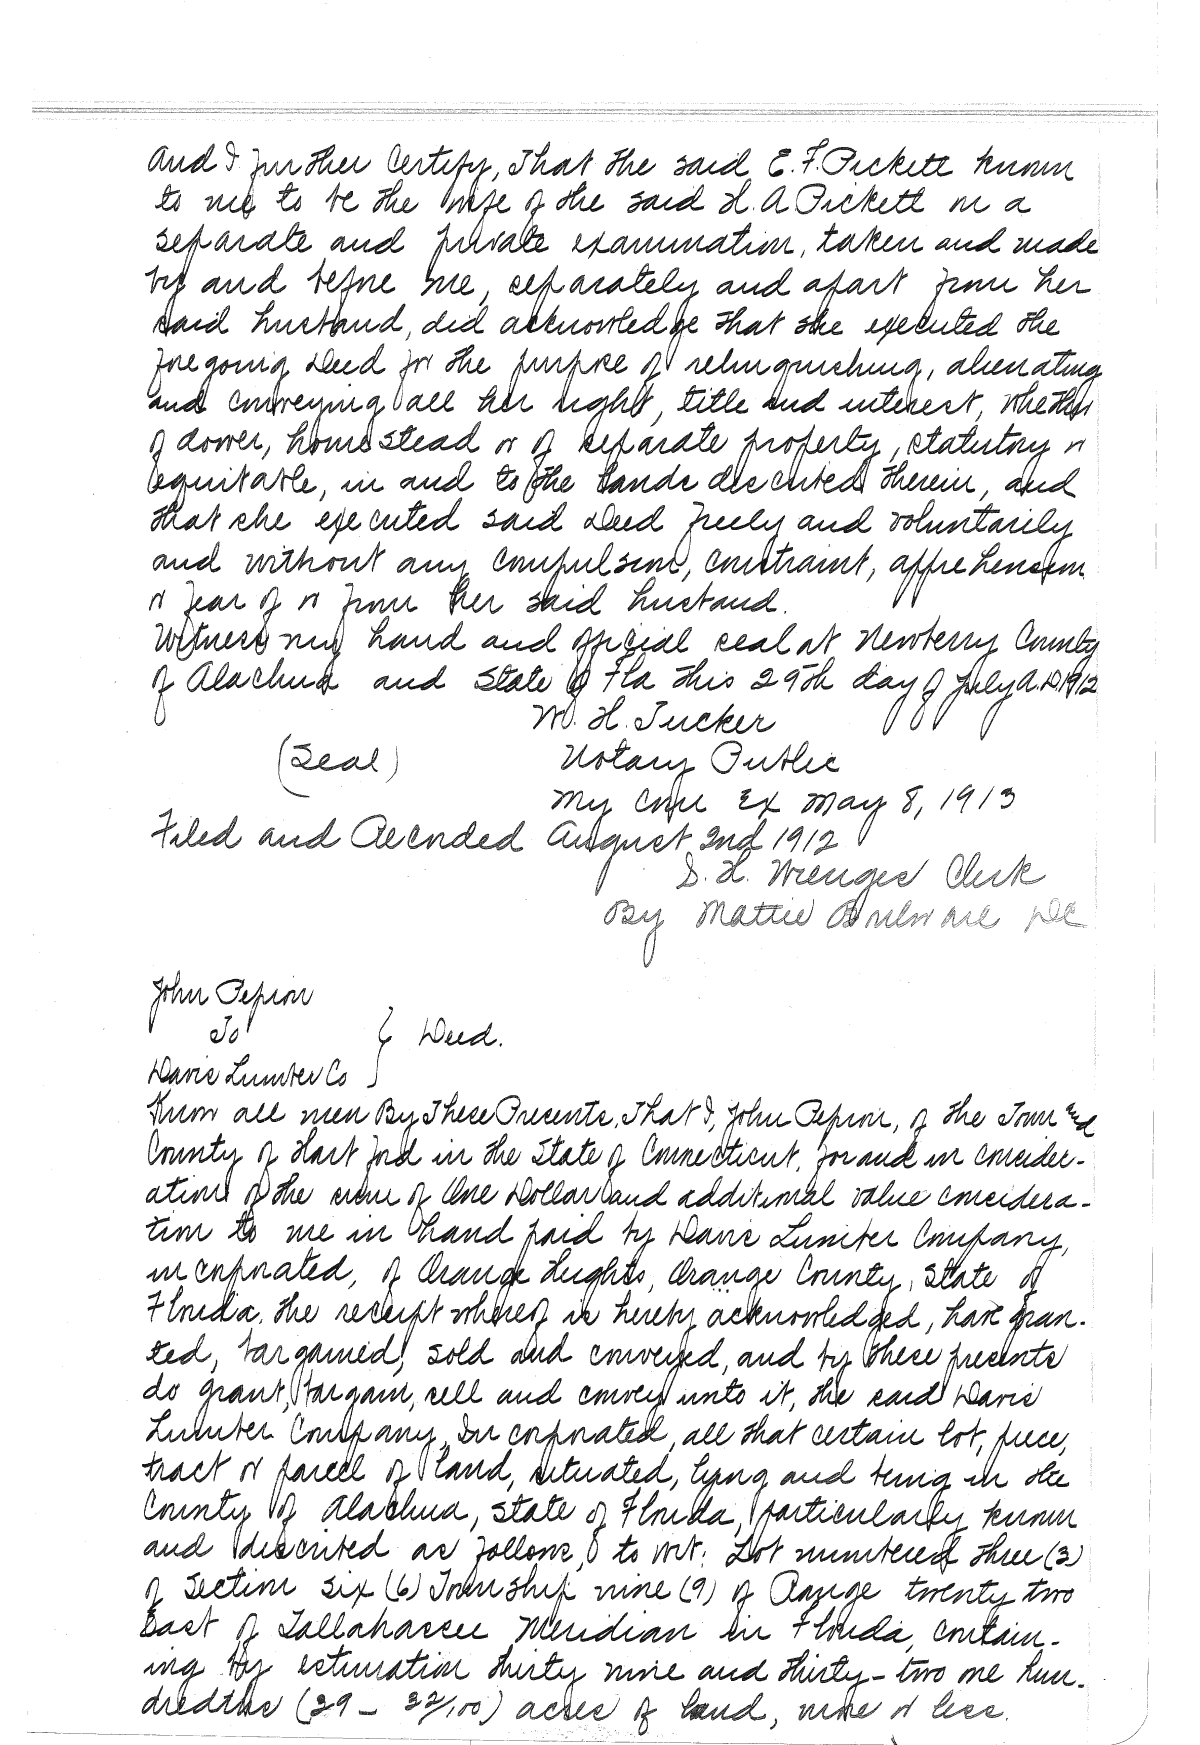 And I further Certify, That the said E. F. Pickett known
to me to be the wife of the said H. A Pickett on a
separate and private examination, taken and made
by and before me, separately and apart from her
said husband, did acknowledge that she executed the
foregoing Deed for the purpose of relinquishing, alienating
and conveying all her right, title and interest, whether
of dower, homestead or of separate property, statutory or
equitable, in and to the lands described therein, and
that she executed said Deed freely and voluntarily
and without any compulsion, constraint, apprehension
or fear of or from her said husband.
Witness my hand and official seal at Newberry County
of Alachua and State of Fla this 29th day of July A.D. 1912
W. H. Tucker
(Seal) Notary Public
My Com Ex May 8, 1913
Filed and Recorded August 2nd 1912
S. H. Wienges Clerk
By Mattie Boulware DC
John Pepion
To } Deed.
Davis Lumber Co
Know all men By These Presents, That I, John Pepion, of the Town and
County of Hartford in the State of Connecticut, for and in consider-
ation of the sum of One Dollar and additional value considera-
tion to me in hand paid by Davis Lumber Company,
incorporated, of Orange Heights, Orange County, State of
Florida, the receipt whereof is hereby acknowledged, have gran-
ted, bargained, sold and conveyed, and by these presents
do grant, bargain, sell and convey unto it, the said Davis
Lumber Company, Incorporated, all that certain lot, piece,
tract or parcel of land, situated, lying and being in the
County of Alachua, State of Florida, particularly known
and described as follows, to wit: Lot numbered three (3)
of Section six (6) Township nine (9) of Range twenty two
East of Tallahassee Meridian in Florida, contain-
ing by estimation thirty nine and thirty-two one hun-
dredths (39 - 32/100) acres of land, more or less.